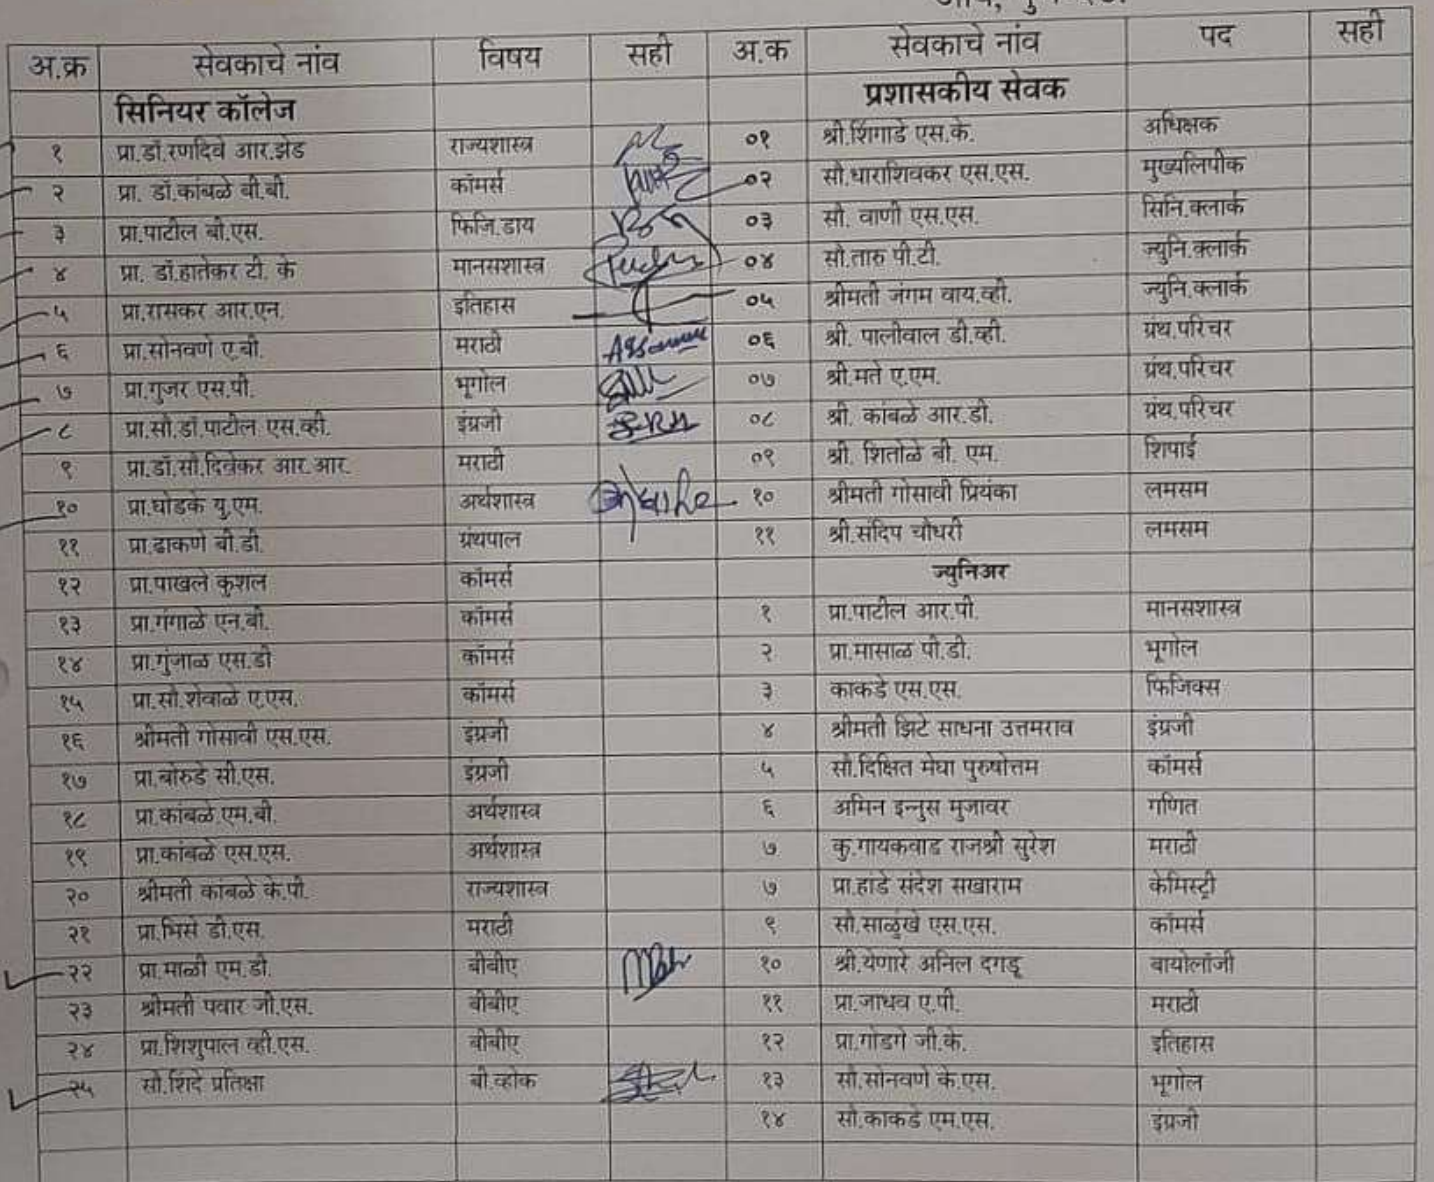 अ.क्र सेवकाचे नांव विषय सही अ.क सेवकाचे नांव पद सही
सिनियर कॉलेज प्रशासकीय सेवक
१ प्रा.डॉ.रणदिवे आर.झेड राज्यशास्त्र ०१ श्री.शिंगाडे एस.के. अधिक्षक
२ प्रा. डॉ.कांबळे बी.बी. कॉमर्स ०२ सौ.धाराशिवकर एस.एस. मुख्यलिपीक
३ प्रा.पाटील बी.एस. फिजि.डाय ०३ सौ. वाणी एस.एस. सिनि.क्लार्क
४ प्रा. डॉ.हातेकर टी. के मानसशास्त्र ०४ सौ.तारु पी.टी. ज्युनि.क्लार्क
५ प्रा.रासकर आर.एन. इतिहास ०५ श्रीमती जंगम वाय.व्ही. ज्युनि.क्लार्क
६ प्रा.सोनवणे ए.बी. मराठी ०६ श्री. पालीवाल डी.व्ही. ग्रंथ.परिचर
७ प्रा.गुजर एस.पी. भूगोल ०७ श्री.मते ए.एम. ग्रंथ.परिचर
८ प्रा.सौ.डॉ.पाटील एस.व्ही. इंग्रजी ०८ श्री. कांबळे आर.डी. ग्रंथ.परिचर
९ प्रा.डॉ.सौ.दिवेकर आर.आर. मराठी ०९ श्री. शितोळे बी. एम. शिपाई
१० प्रा.घोडके यु.एम. अर्थशास्त्र १० श्रीमती गोसावी प्रियंका लमसम
११ प्रा.ढाकणे बी.डी. ग्रंथपाल ११ श्री.संदिप चौधरी लमसम
१२ प्रा.पाखले कुशल कॉमर्स ज्युनिअर
१३ प्रा.गंगाळे एन.बी. कॉमर्स १ प्रा.पाटील आर.पी. मानसशास्त्र
१४ प्रा.गुंजाळ एस.डी कॉमर्स २ प्रा.मासाळ पी.डी. भूगोल
१५ प्रा.सौ.शेवाळे ए.एस. कॉमर्स ३ काकडे एस.एस. फिजिक्स
१६ श्रीमती गोसावी एस.एस. इंग्रजी ४ श्रीमती झिटे साधना उत्तमराव इंग्रजी
१७ प्रा.बोरुडे सी.एस. इंग्रजी ५ सौ.दिक्षित मेघा पुरुषोत्तम कॉमर्स
१८ प्रा.कांबळे एम.बी. अर्थशास्त्र ६ अमिन इन्नुस मुजावर गणित
१९ प्रा.कांबळे एस.एस. अर्थशास्त्र ७ कु.गायकवाड राजश्री सुरेश मराठी
२० श्रीमती कांबळे के.पी. राज्यशास्त्र ७ प्रा.हांडे संदेश सखाराम केमिस्ट्री
२१ प्रा.भिसे डी.एस. मराठी ९ सौ.साळुंखे एस.एस. कॉमर्स
२२ प्रा.माळी एम.डी. बीबीए १० श्री.येणारे अनिल दगडू बायोलॉजी
२३ श्रीमती पवार जी.एस. बीबीए ११ प्रा.जाधव ए.पी. मराठी
२४ प्रा.शिशुपाल व्ही.एस. बीबीए १२ प्रा.गोडगे जी.के. इतिहास
२५ सौ.शिंदे प्रतिक्षा बी.व्होक १३ सौ.सोनवणे के.एस. भूगोल
१४ सौ.काकडे एम.एस. इंग्रजी